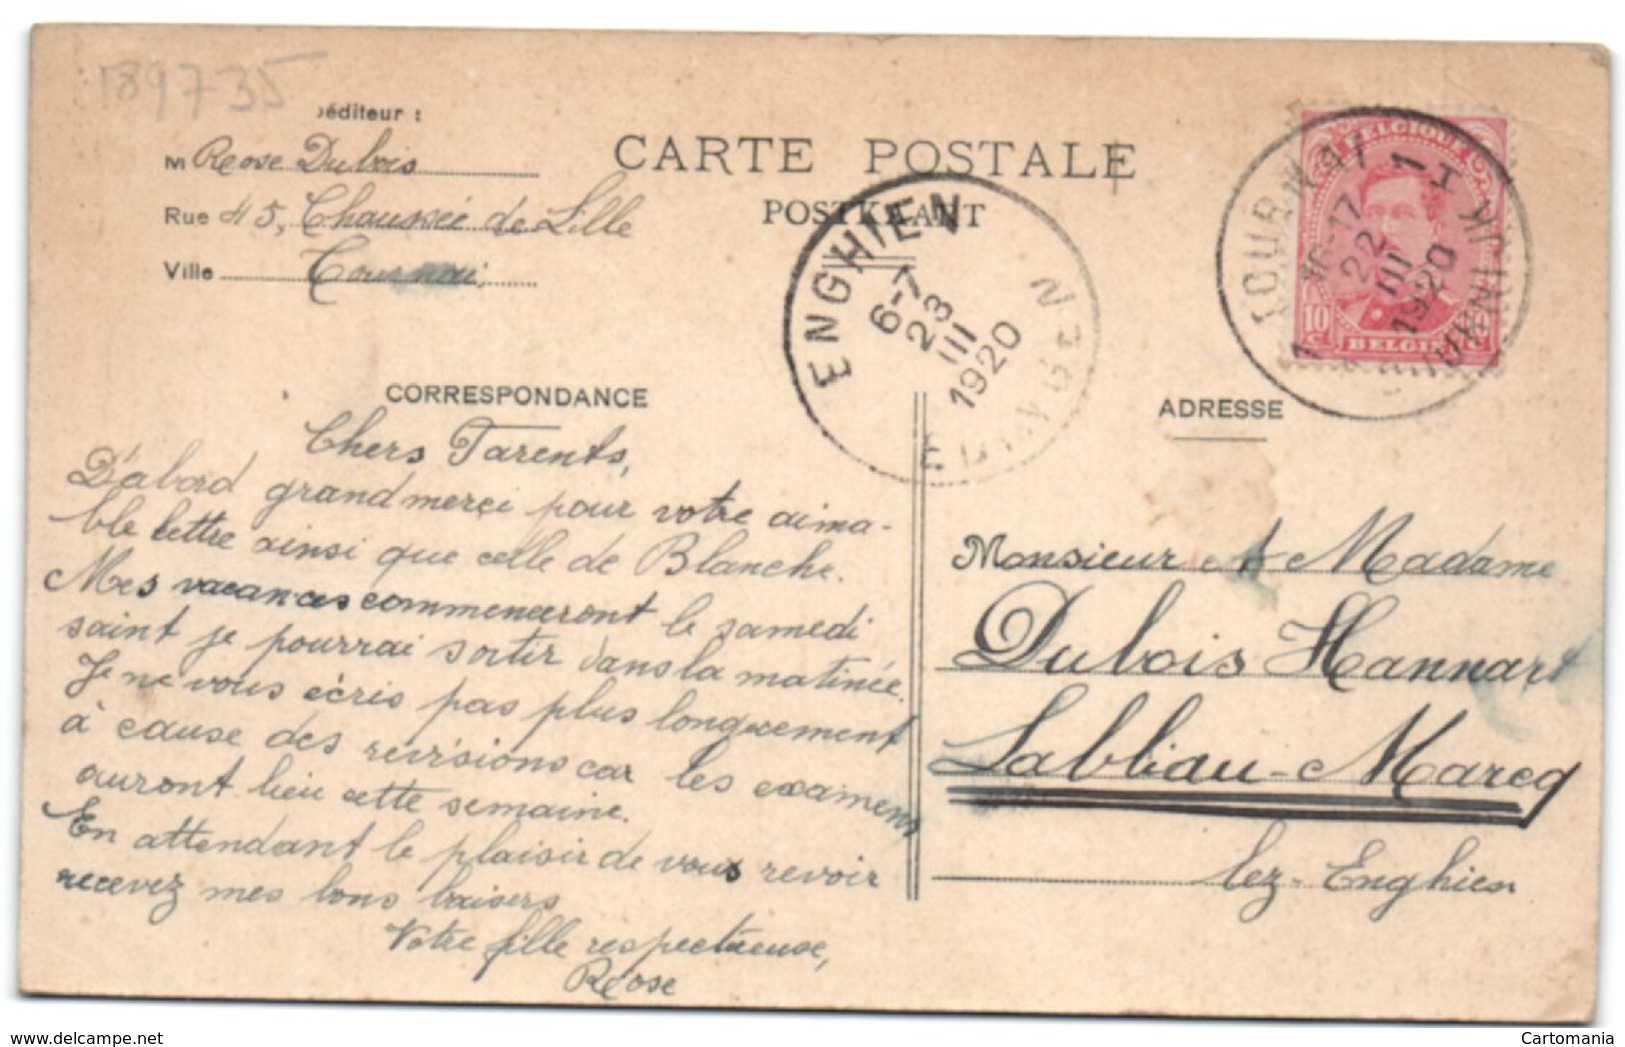 189735
éditeur :
M Rose Dubois
Rue 45, Chaussée de Lille
Ville Tournai,
CARTE POSTALE
POSTKAART
ENGHIEN
6-7
23
III
1920
EDINGEN
BELGIQUE
10c
BELGIË
TOURNAI 1
16-17
22
III
1920
DOORNIJK 1
CORRESPONDANCE
ADRESSE
Chers Parents,
D'abord grand merci pour votre aima-
ble lettre ainsi que celle de Blanche.
Mes vacances commenceront le samedi
saint je pourrai sortir dans la matinée.
Je ne vous écris pas plus longuement
à cause des revisions car les examens
auront lieu cette semaine.
En attendant le plaisir de vous revoir
recevez mes bons baisers
Votre fille respectueuse,
Rose
Monsieur & Madame
Dubois Hannart
Labliau-Marcq
lez-Enghien
www.delcampe.net
Cartomania